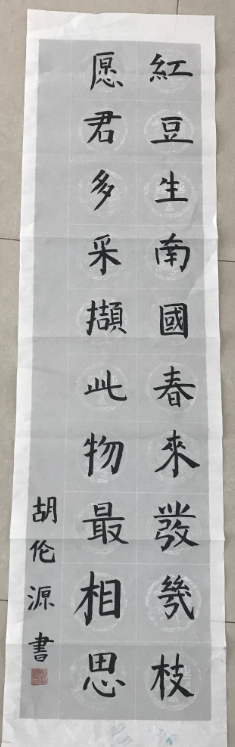 紅豆生南國春來發幾枝
愿君多采擷此物最相思
胡伦源書